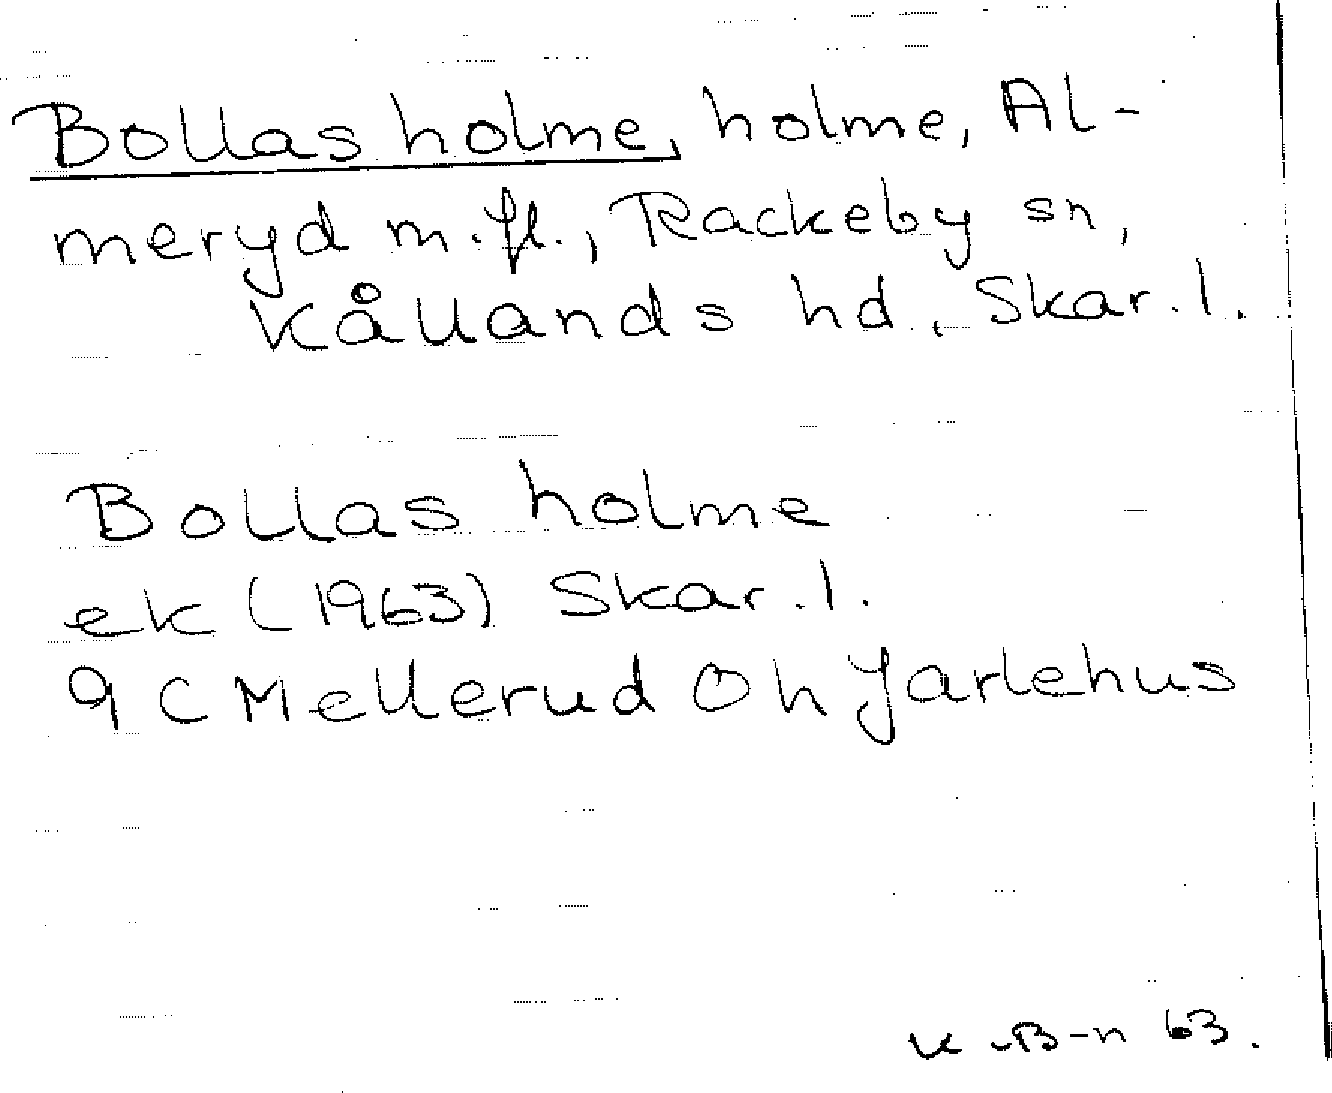 Bollas holme, holme, Al-
meryd m.fl., Rackeby sn,
Kållands hd., Skar.l.
Bollas holme
ek (1963) Skar.l.
9C Mellerud Oh Jarlehus
K B-n 63.